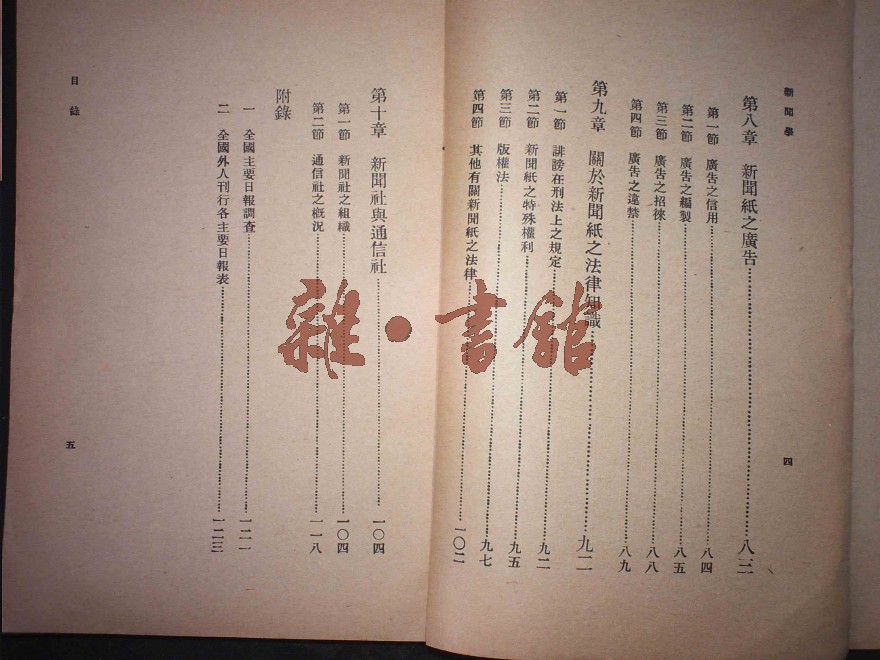 新聞學
第八章 新聞紙之廣告……八三
第一節 廣告之信用……八四
第二節 廣告之編製……八五
第三節 廣告之招徠……八八
第四節 廣告之違禁……八九
第九章 關於新聞紙之法律知識……九二
第一節 誹謗在刑法上之規定……九二
第二節 新聞紙之特殊權利……九五
第三節 版權法……九七
第四節 其他有關新聞紙之法律……一〇二
四
第十章 新聞社與通信社……一〇四
第一節 新聞社之組織……一〇四
第二節 通信社之概況……一一八
附錄
一 全國主要日報調查……一二一
二 全國外人刊行各主要日報表……一二三
目錄
五
雜·書館